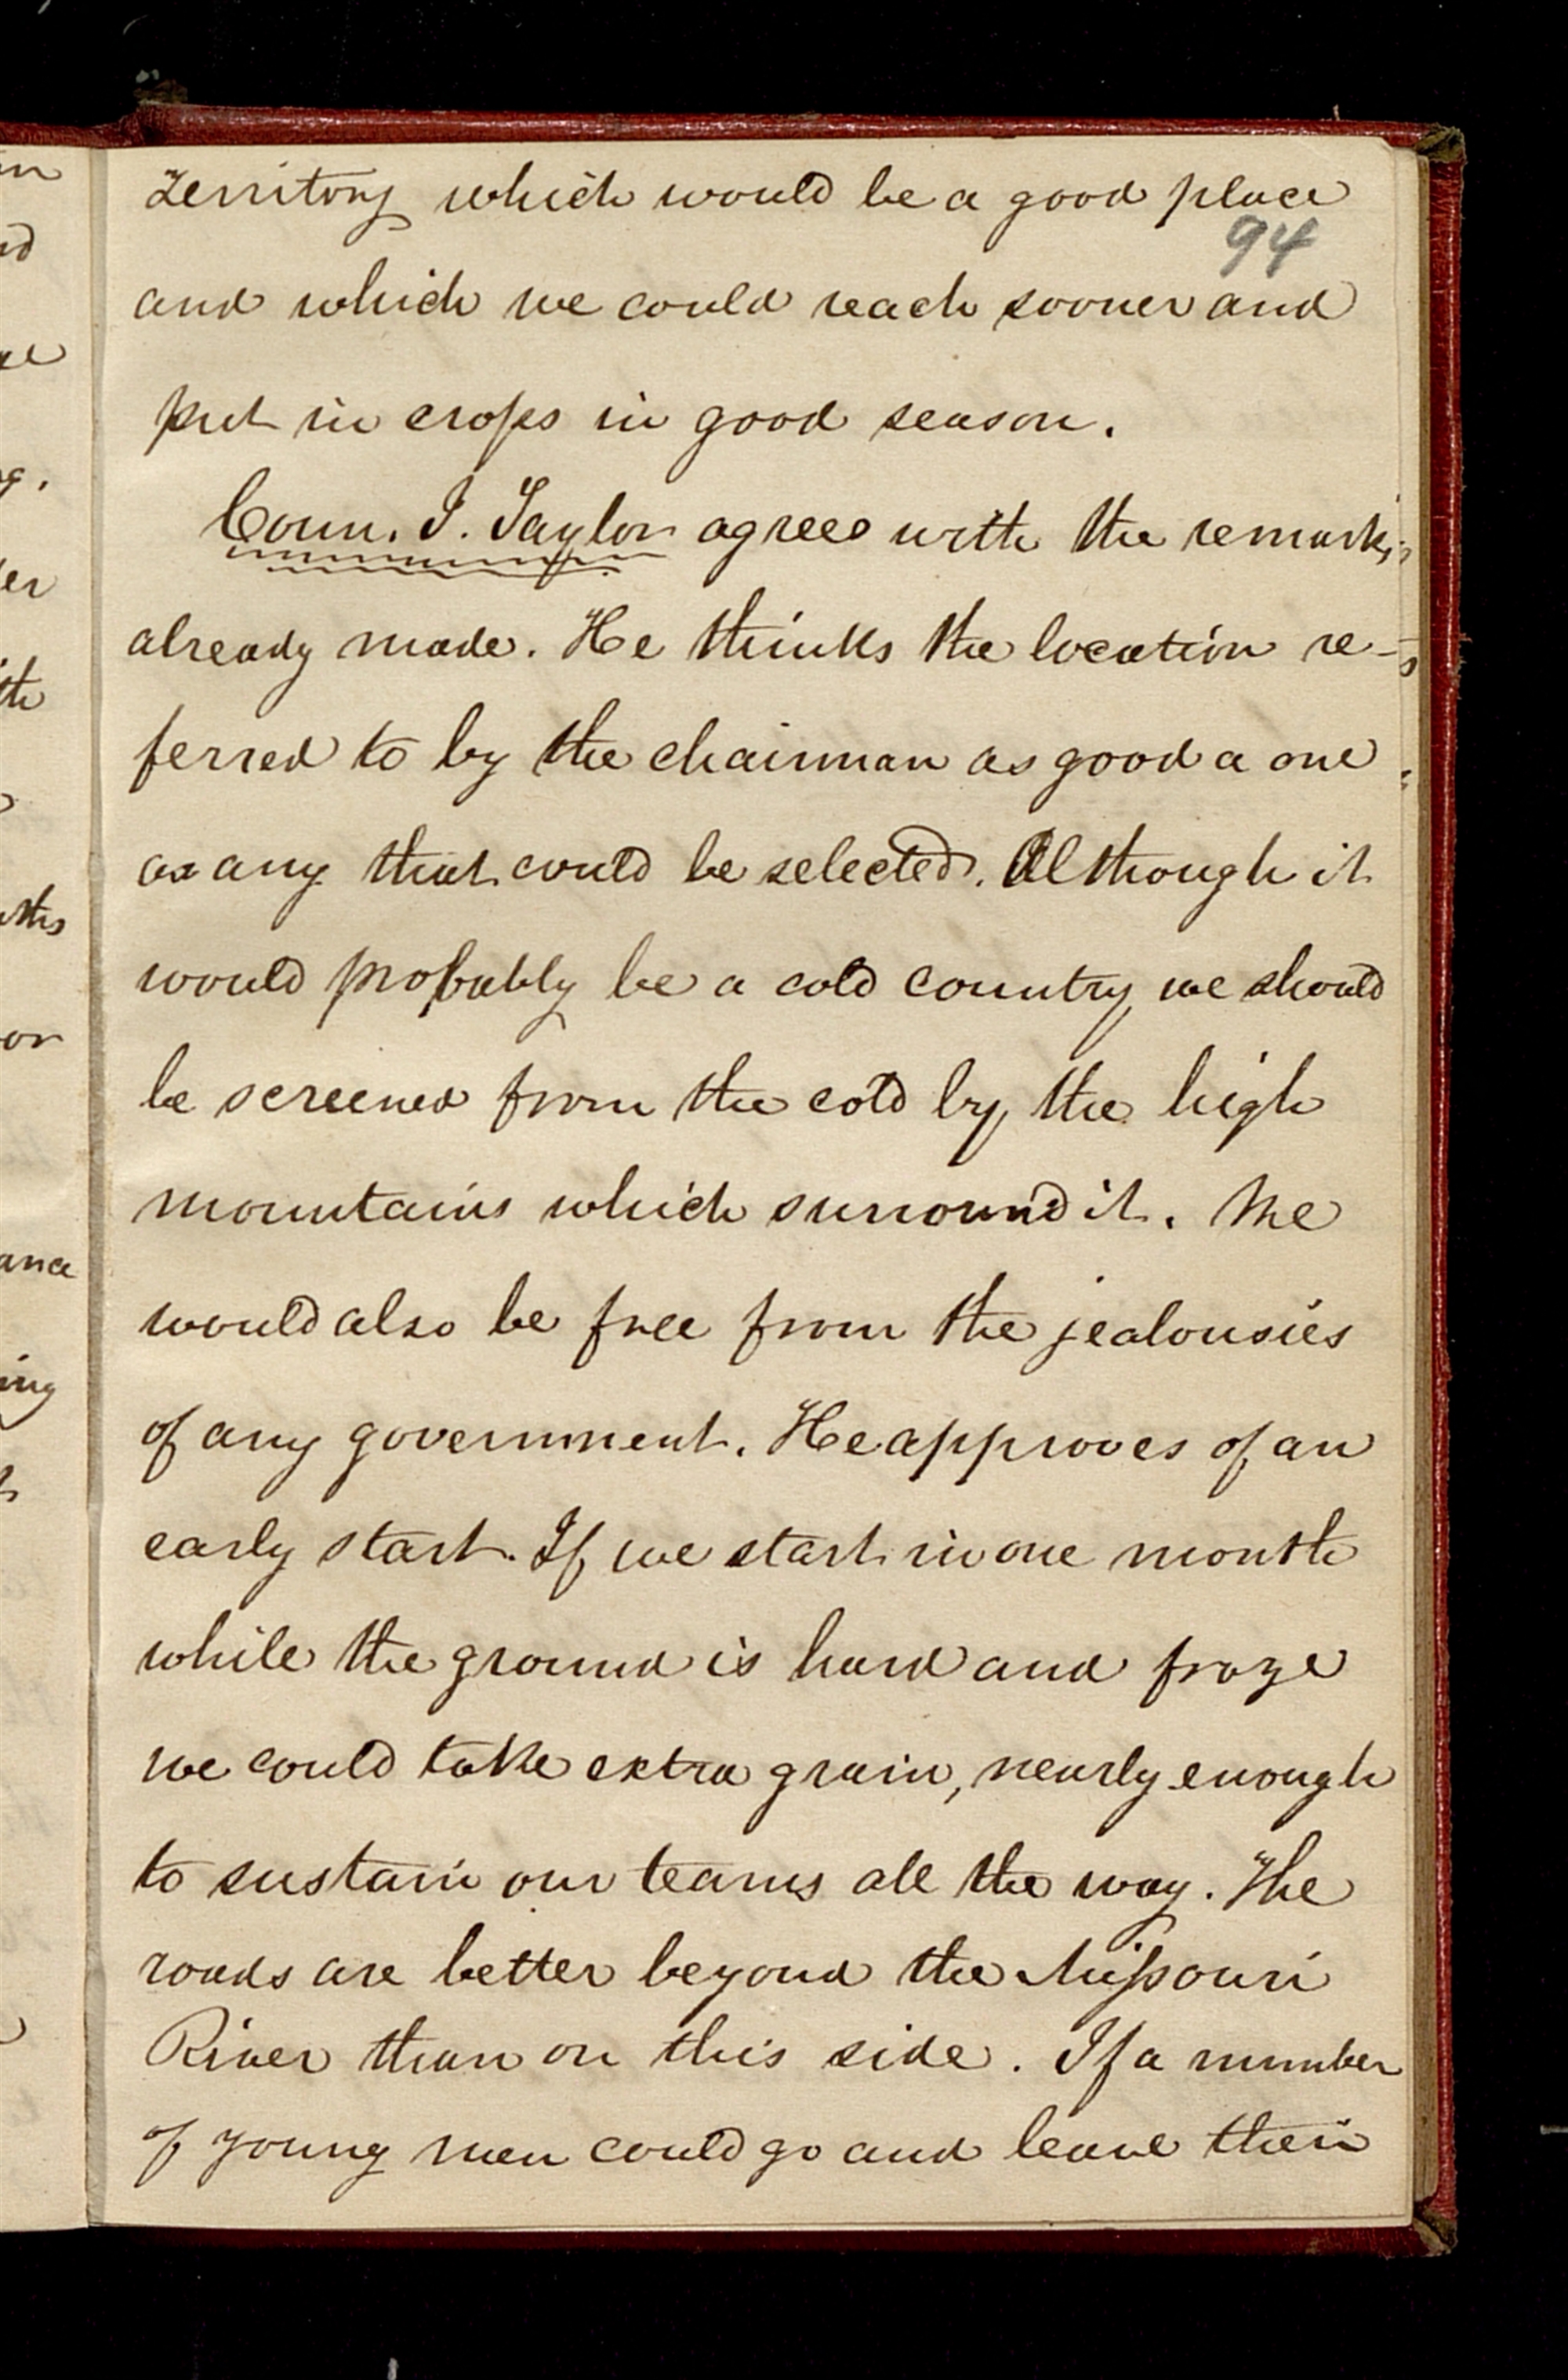 territory which would be a good place
94
and which we could reach sooner and
put in crops in good season.
Coun. J. Taylor agrees with the remarks
already made. He thinks the location re-
ferred to by the chairman as good a one
as any that could be selected. Although it
would probably be a cold country we should
be screened from the cold by the high
mountains which surround it. We
would also be free from the jealousies
of any government. He approves of an
early start. If we start in one month
while the ground is hard and froze
we could take extra grain, nearly enough
to sustain our teams all the way. The
roads are better beyond the Missouri
River than on this side. If a number
of young men could go and leave their